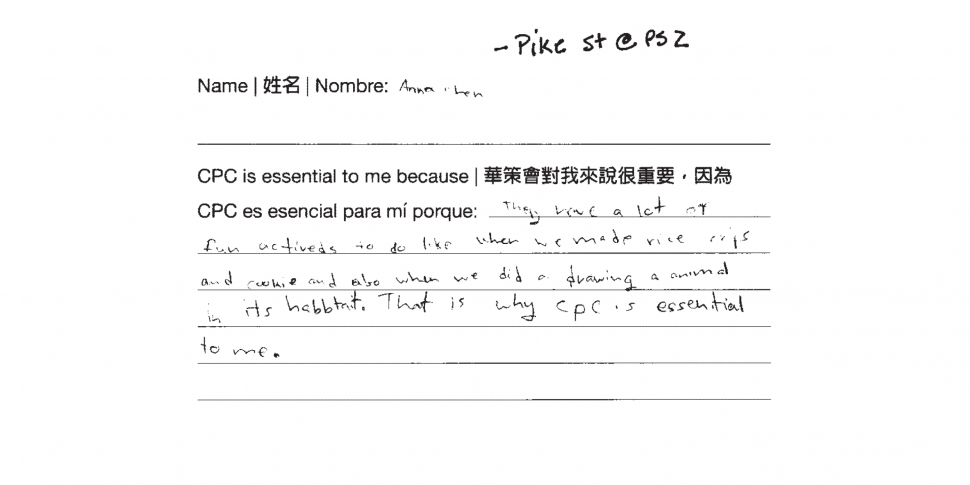 - Pike st @ PS2
Name | 姓名 | Nombre: Anna
CPC is essential to me because | 華策會對我來說很重要，因為
CPC es esencial para mí porque: They have a lot of
fun activeds to do like when we made rice crips
and cookie and also when we did a drawing a animal
in its habbtat. That is why cpc is essential
to me.